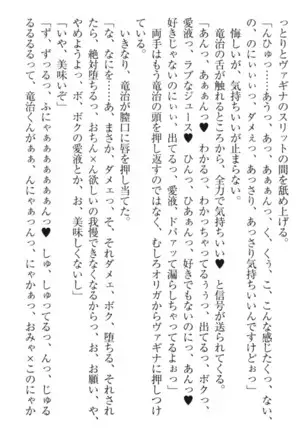 っとりとヴァギナのスリットの間を舐め上げる。
「んひゅっ……あうっ、あっ、あぁぁんっ、く、くぅ、こ、こんな感じたくっ、ない、
の、のにぃぃっっ、ダメぇっ、あっさり、あっさり気持ちいいんですけどぉっ」
悔しいが、気持ちいいが止まらない。
竜治の舌が触れるところから、全力で気持ちいい♥　と信号が送られてくる。
「あんっ、あぁぁんっ♥　わかるっ、わかっちゃってるぅぅっ、出てるっ、ボクっ、
愛液っ、ラブなジュース♥　ひんっ、ひあぁんっ、好きでもないのにっ、あんっ♥
好きじゃないのにぃぃ、出てるっ、愛液、ドバァッて漏らしちゃってるよぉっ」
両手はもう竜治の頭を押し返すのではなく、むしろオリガからヴァギナに押しつけ
ている。
いきなり、竜治が膣口に唇を押し当てた。
「な、なにを……あ、まさか、ダメェっ、そ、それダメェ、ボク、堕ちる、それされ
たら、絶対堕ちるっ、おちん×ん欲しいの我慢できなくなるからっ、お、お願い、や、
やめようよっ、ボ、ボクの愛液とか、お、美味しくないし」
「いや、美味いぞ」
「ず、ずっるっ、ふにゃぁぁぁぁぁぁんっ♥　しゅ、しゅってるっ、んっ、じゅる
っ、んあぁっ、竜治くんがぁぁっ、んにゃぁんっ、にゃかぁっ、おみゃ×このにゃか